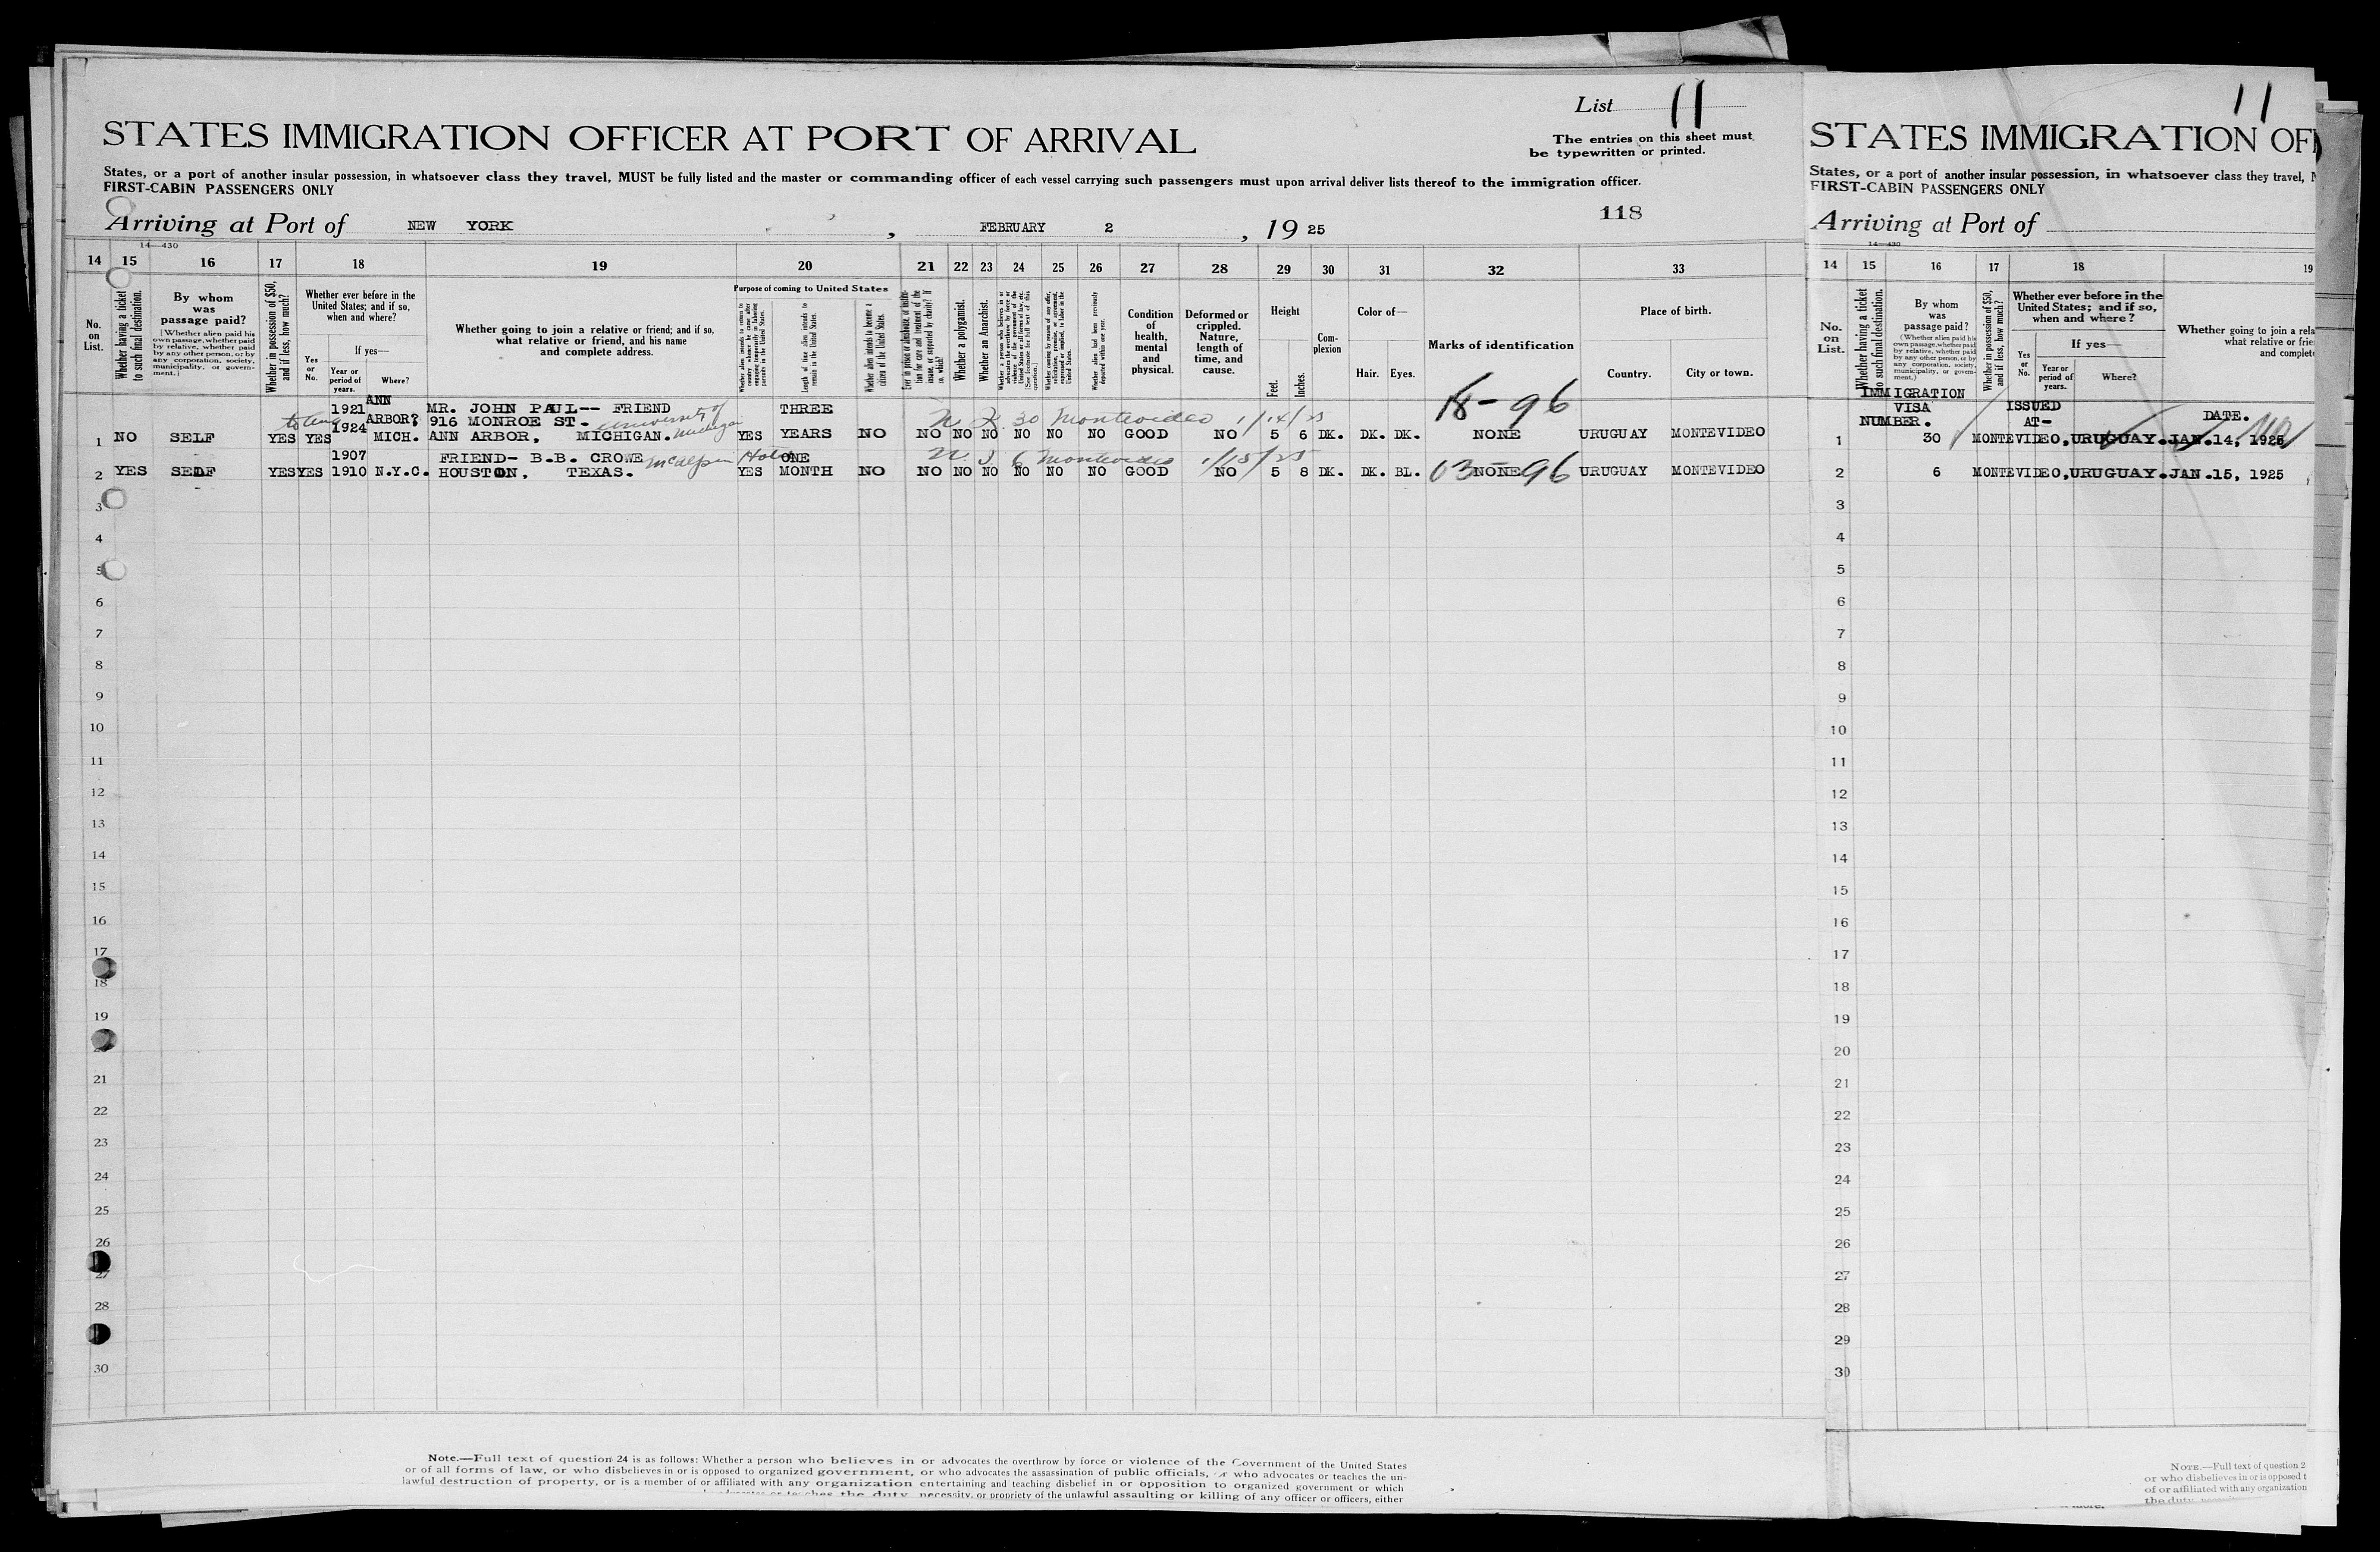 List 11
STATES IMMIGRATION OFFICER AT PORT OF ARRIVAL
The entries on this sheet must
be typewritten or printed.
States, or a port of another insular possession, in whatsoever class they travel, MUST be fully listed and the master or commanding officer of each vessel carrying such passengers must upon arrival deliver lists thereof to the immigration officer.
FIRST-CABIN PASSENGERS ONLY
118
Arriving at Port of NEW YORK, FEBRUARY 2, 19 25
14—430
14 15 16 17 18 19 20 21 22 23 24 25 26 27 28 29 30 31 32 33
No. on List.
Whether having a ticket to such final destination.
By whom was passage paid?
(Whether alien paid his own passage, whether paid by relative, whether paid by any other person, or by any corporation, society, municipality, or government.)
Whether in possession of $50, and if less, how much?
Whether ever before in the United States; and if so, when and where?
If yes—
Yes or No.
Year or period of years.
Where?
Whether going to join a relative or friend; and if so, what relative or friend, and his name and complete address.
Purpose of coming to United States
Length of time alien intends to remain in the United States.
Whether alien intends to become a citizen of the United States.
Whether a polygamist.
Whether an Anarchist.
Condition of health, mental and physical.
Deformed or crippled. Nature, length of time, and cause.
Height
Feet. Inches.
Complexion
Color of—
Hair. Eyes.
Marks of identification
Place of birth.
Country. City or town.
1921 ANN MR. JOHN PAUL-- FRIEND University of THREE 30 Montevideo 1/14/25 18-96
1924 ARBOR, 916 MONROE ST. Michigan
1 NO SELF YES YES MICH. ANN ARBOR, MICHIGAN. YES YEARS NO NO NO NO NO NO NO GOOD NO 5 6 DK. DK. DK. NONE URUGUAY MONTEVIDEO
1907 FRIEND- B.B. CROWE McAlpin Hotel ONE 6 Montevideo 1/15/25 03-96
2 YES SELF YES YES 1910 N.Y.C. HOUSTON, TEXAS. YES MONTH NO NO NO NO NO NO NO GOOD NO 5 8 DK. DK. BL. NONE URUGUAY MONTEVIDEO
3
4
5
6
7
8
9
10
11
12
13
14
15
16
17
18
19
21
22
23
24
25
26
27
28
29
30
Note.—Full text of question 24 is as follows: Whether a person who believes in or advocates the overthrow by force or violence of the Government of the United States
or of all forms of law, or who disbelieves in or is opposed to organized government, or who advocates the assassination of public officials, or who advocates or teaches the un-
lawful destruction of property, or is a member of or affiliated with any organization entertaining and teaching disbelief in or opposition to organized government or which
teaches the duty, necessity, or propriety of the unlawful assaulting or killing of any officer or officers, either
11
STATES IMMIGRATION OF
States, or a port of another insular possession, in whatsoever class they travel,
FIRST-CABIN PASSENGERS ONLY
Arriving at Port of
14—430
14 15 16 17 18 19
No. on List.
Whether having a ticket to such final destination.
By whom was passage paid?
(Whether alien paid his own passage, whether paid by relative, whether paid by any other person, or by any corporation, society, municipality, or government.)
Whether in possession of $50, and if less, how much?
Whether ever before in the United States; and if so, when and where?
If yes—
Yes or No.
Year or period of years.
Where?
Whether going to join a rela
what relative or frie
and complet
IMMIGRATION
VISA ISSUED
NUMBER. AT- DATE.
1 30 MONTEVIDEO, URUGUAY. JAN. 14, 1925
2 6 MONTEVIDEO, URUGUAY. JAN. 15, 1925
3
4
5
6
7
8
9
10
11
12
13
14
15
16
17
18
19
20
21
22
23
24
25
26
27
28
29
30
NOTE.—Full text of question 2
or who disbelieves in or is opposed t
of or affiliated with any organization
the duty,